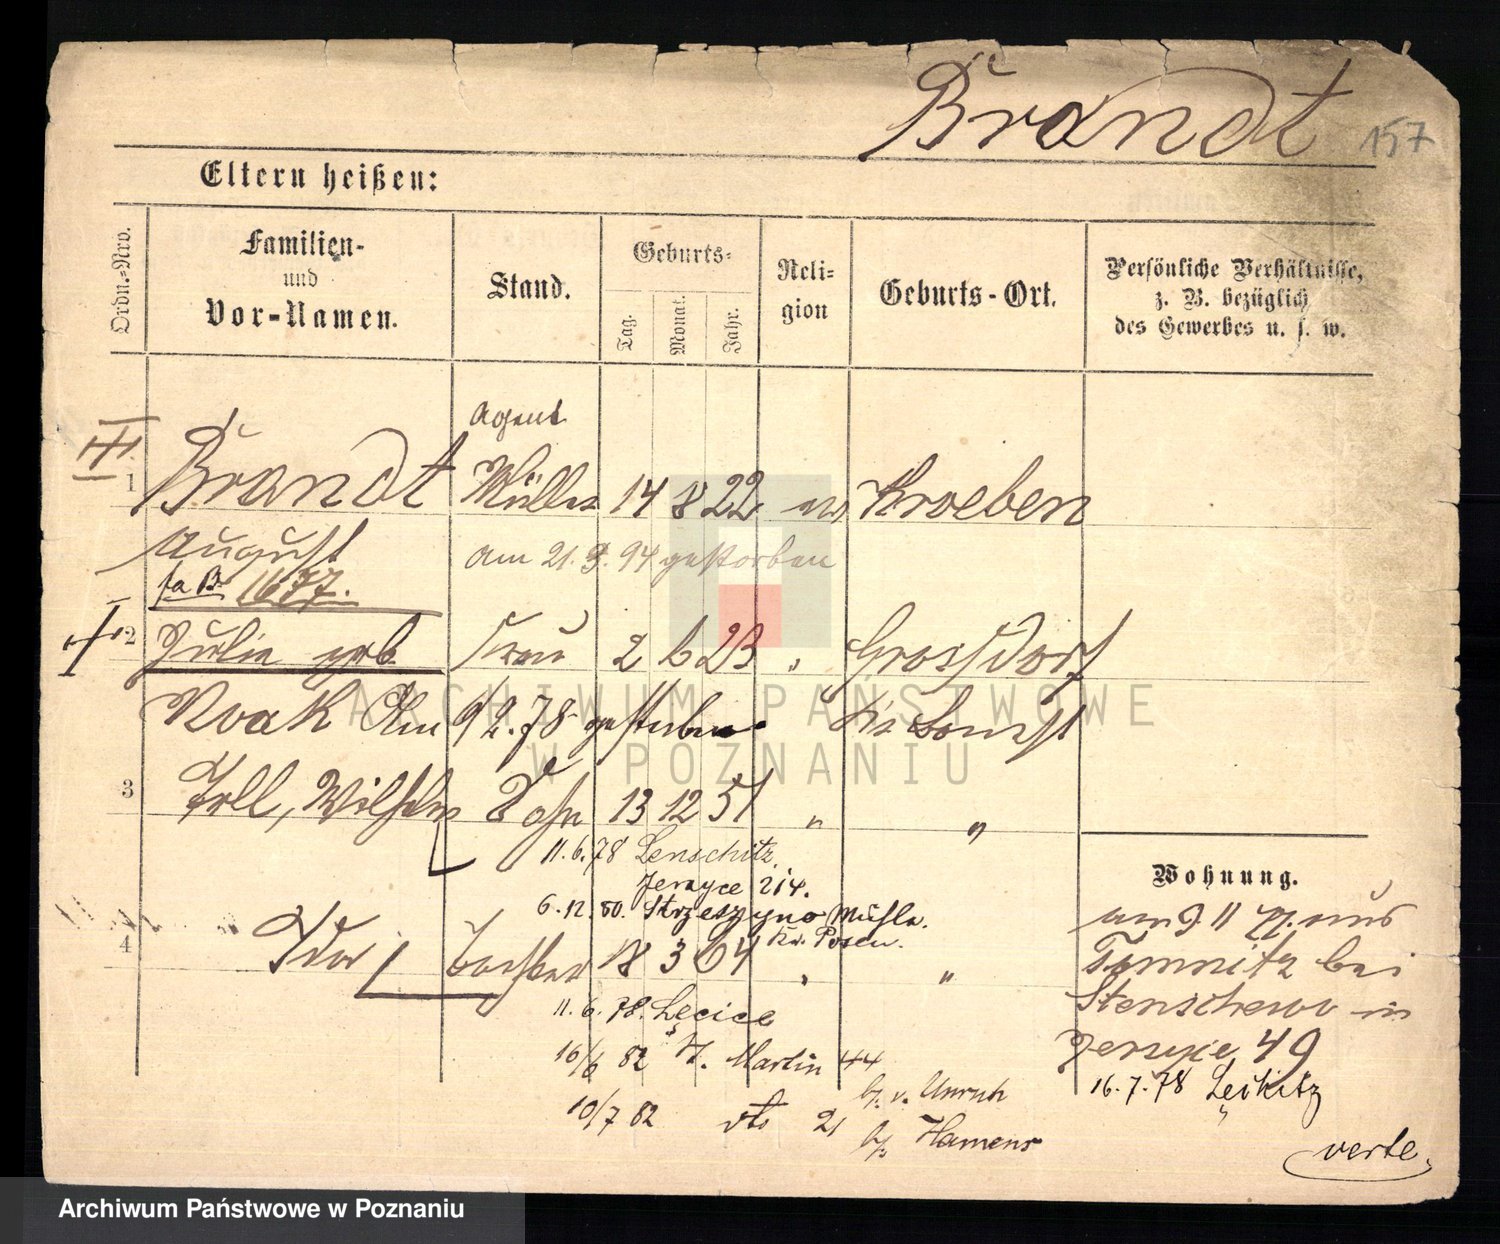 Brandt 157
Eltern heißen:
Ordn.-Nro.
Familien-
und
Vor-Namen.
Stand.
Geburts-
Tag.
Monat.
Jahr.
Reli-
gion
Geburts-Ort.
Persönliche Verhältnisse,
z. B. bezüglich
des Gewerbes u. s. w.
Agent
1 Brandt Müller 14 8 22 ev Kroeben
August am 21. 9. 94 gestorben
fa B. 1677.
2 Julie geb Frau 2 6 23 " Grossdorf
Noak Am 9/2.78 gestorben
3 Wilhelm Sohn 13 12 51 " "
11.6.78 Lenschitz
Jerzyce 214.
6.12.80. Strzeszyno Mühle.
Kr. Posen.
4 Ida Tochter 18 3 64 " "
11.6.78. Lęcice
16/6 82 St. Martin 44
b. v. Unruh
10/7 82 dto 21
b. Hamens
Wohnung.
am 9. 11 77. aus
Tomnitz bei
Stenschewo in
Jerzyce 49
16.7.78 Leikitz
verte.
ARCHIWUM PAŃSTWOWE
W POZNANIU
Archiwum Państwowe w Poznaniu